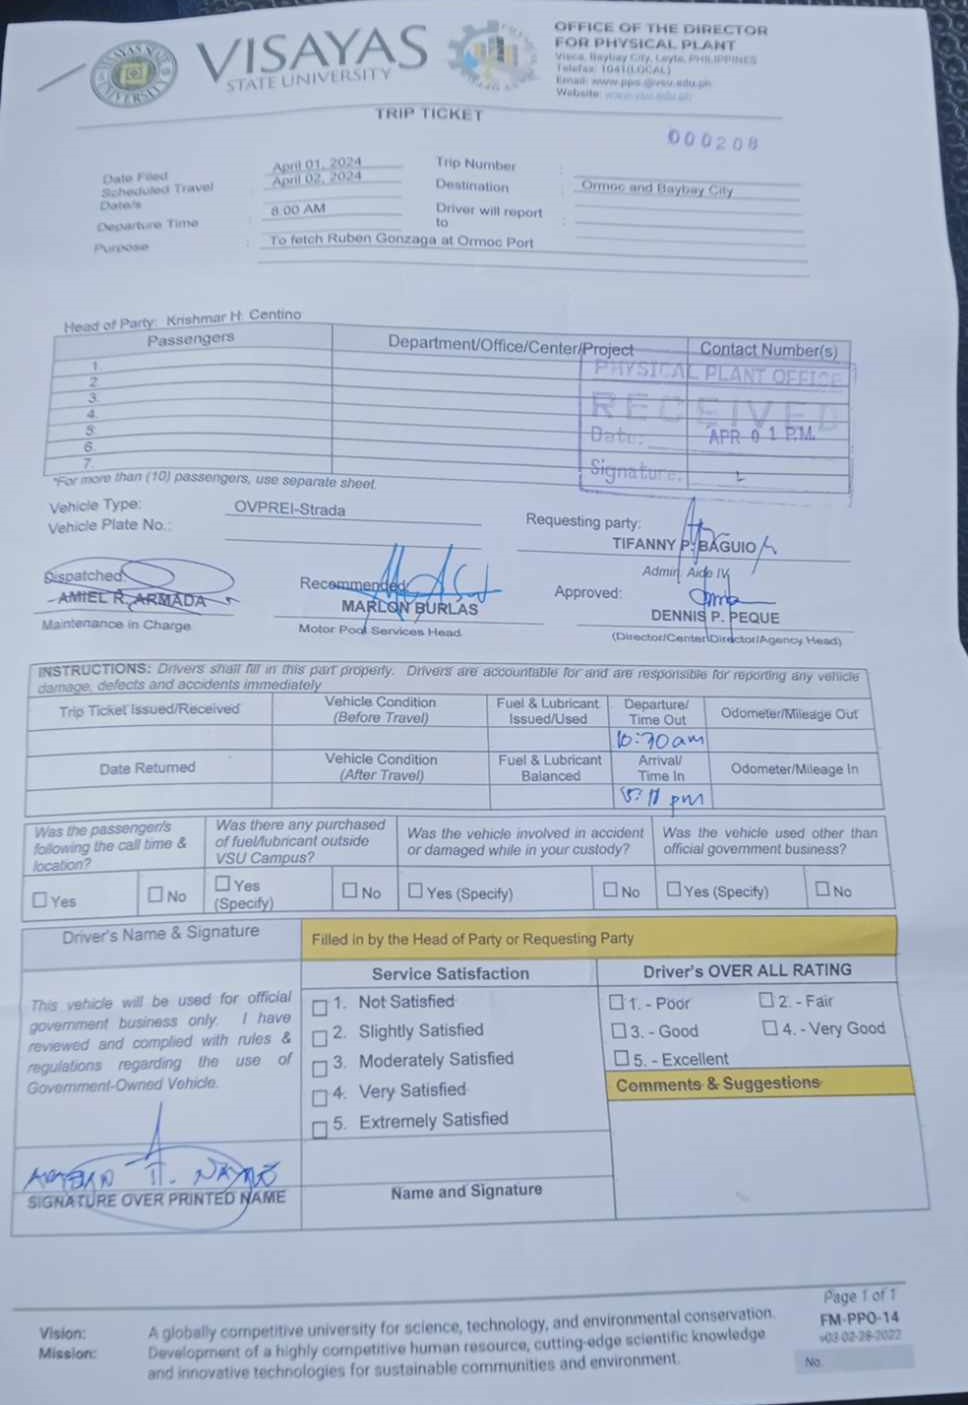 VISAYAS
STATE UNIVERSITY
OFFICE OF THE DIRECTOR
FOR PHYSICAL PLANT
Visca, Baybay City, Leyte, PHILIPPINES
Telefax: 1041(LOCAL)
Email: www.ppo.@vsu.edu.ph
Website: www.vsu.edu.ph
TRIP TICKET
000208
Date Filed : April 01, 2024 Trip Number :
Scheduled Travel Date/s : April 02, 2024 Destination : Ormoc and Baybay City
Departure Time : 8:00 AM Driver will report to :
Purpose : To fetch Ruben Gonzaga at Ormoc Port
Head of Party: Krishmar H. Centino
Passengers Department/Office/Center/Project Contact Number(s)
1.
2.
3.
4.
5.
6.
7.
PHYSICAL PLANT OFFICE
RECEIVED
Date: APR 0 1 P.M.
Signature:
*For more than (10) passengers, use separate sheet.
Vehicle Type: OVPREI-Strada
Vehicle Plate No.:
Requesting party:
TIFANNY P. BAGUIO
Admin. Aide IV
Dispatched:
AMIEL R. ARMADA
Maintenance in Charge
Recommended:
MARLON BURLAS
Motor Pool Services Head
Approved:
DENNIS P. PEQUE
(Director/Center Director/Agency Head)
INSTRUCTIONS: Drivers shall fill in this part properly. Drivers are accountable for and are responsible for reporting any vehicle
damage, defects and accidents immediately
Trip Ticket Issued/Received Vehicle Condition (Before Travel) Fuel & Lubricant Issued/Used Departure/ Time Out Odometer/Mileage Out
10:30 am
Date Returned Vehicle Condition (After Travel) Fuel & Lubricant Balanced Arrival/ Time In Odometer/Mileage In
pm
Was the passenger/s following the call time & location?
Was there any purchased of fuel/lubricant outside VSU Campus?
Was the vehicle involved in accident or damaged while in your custody?
Was the vehicle used other than official government business?
Yes No Yes (Specify) No Yes (Specify) No Yes (Specify) No
Driver's Name & Signature
Filled in by the Head of Party or Requesting Party
Service Satisfaction
Driver's OVER ALL RATING
This vehicle will be used for official
government business only. I have
reviewed and complied with rules &
regulations regarding the use of
Government-Owned Vehicle.
1. Not Satisfied
2. Slightly Satisfied
3. Moderately Satisfied
4. Very Satisfied
5. Extremely Satisfied
1. - Poor 2. - Fair
3. - Good 4. - Very Good
5. - Excellent
Comments & Suggestions
SIGNATURE OVER PRINTED NAME
Name and Signature
Page 1 of 1
FM-PPO-14
v03 02-28-2022
No.
Vision: A globally competitive university for science, technology, and environmental conservation.
Mission: Development of a highly competitive human resource, cutting-edge scientific knowledge
and innovative technologies for sustainable communities and environment.